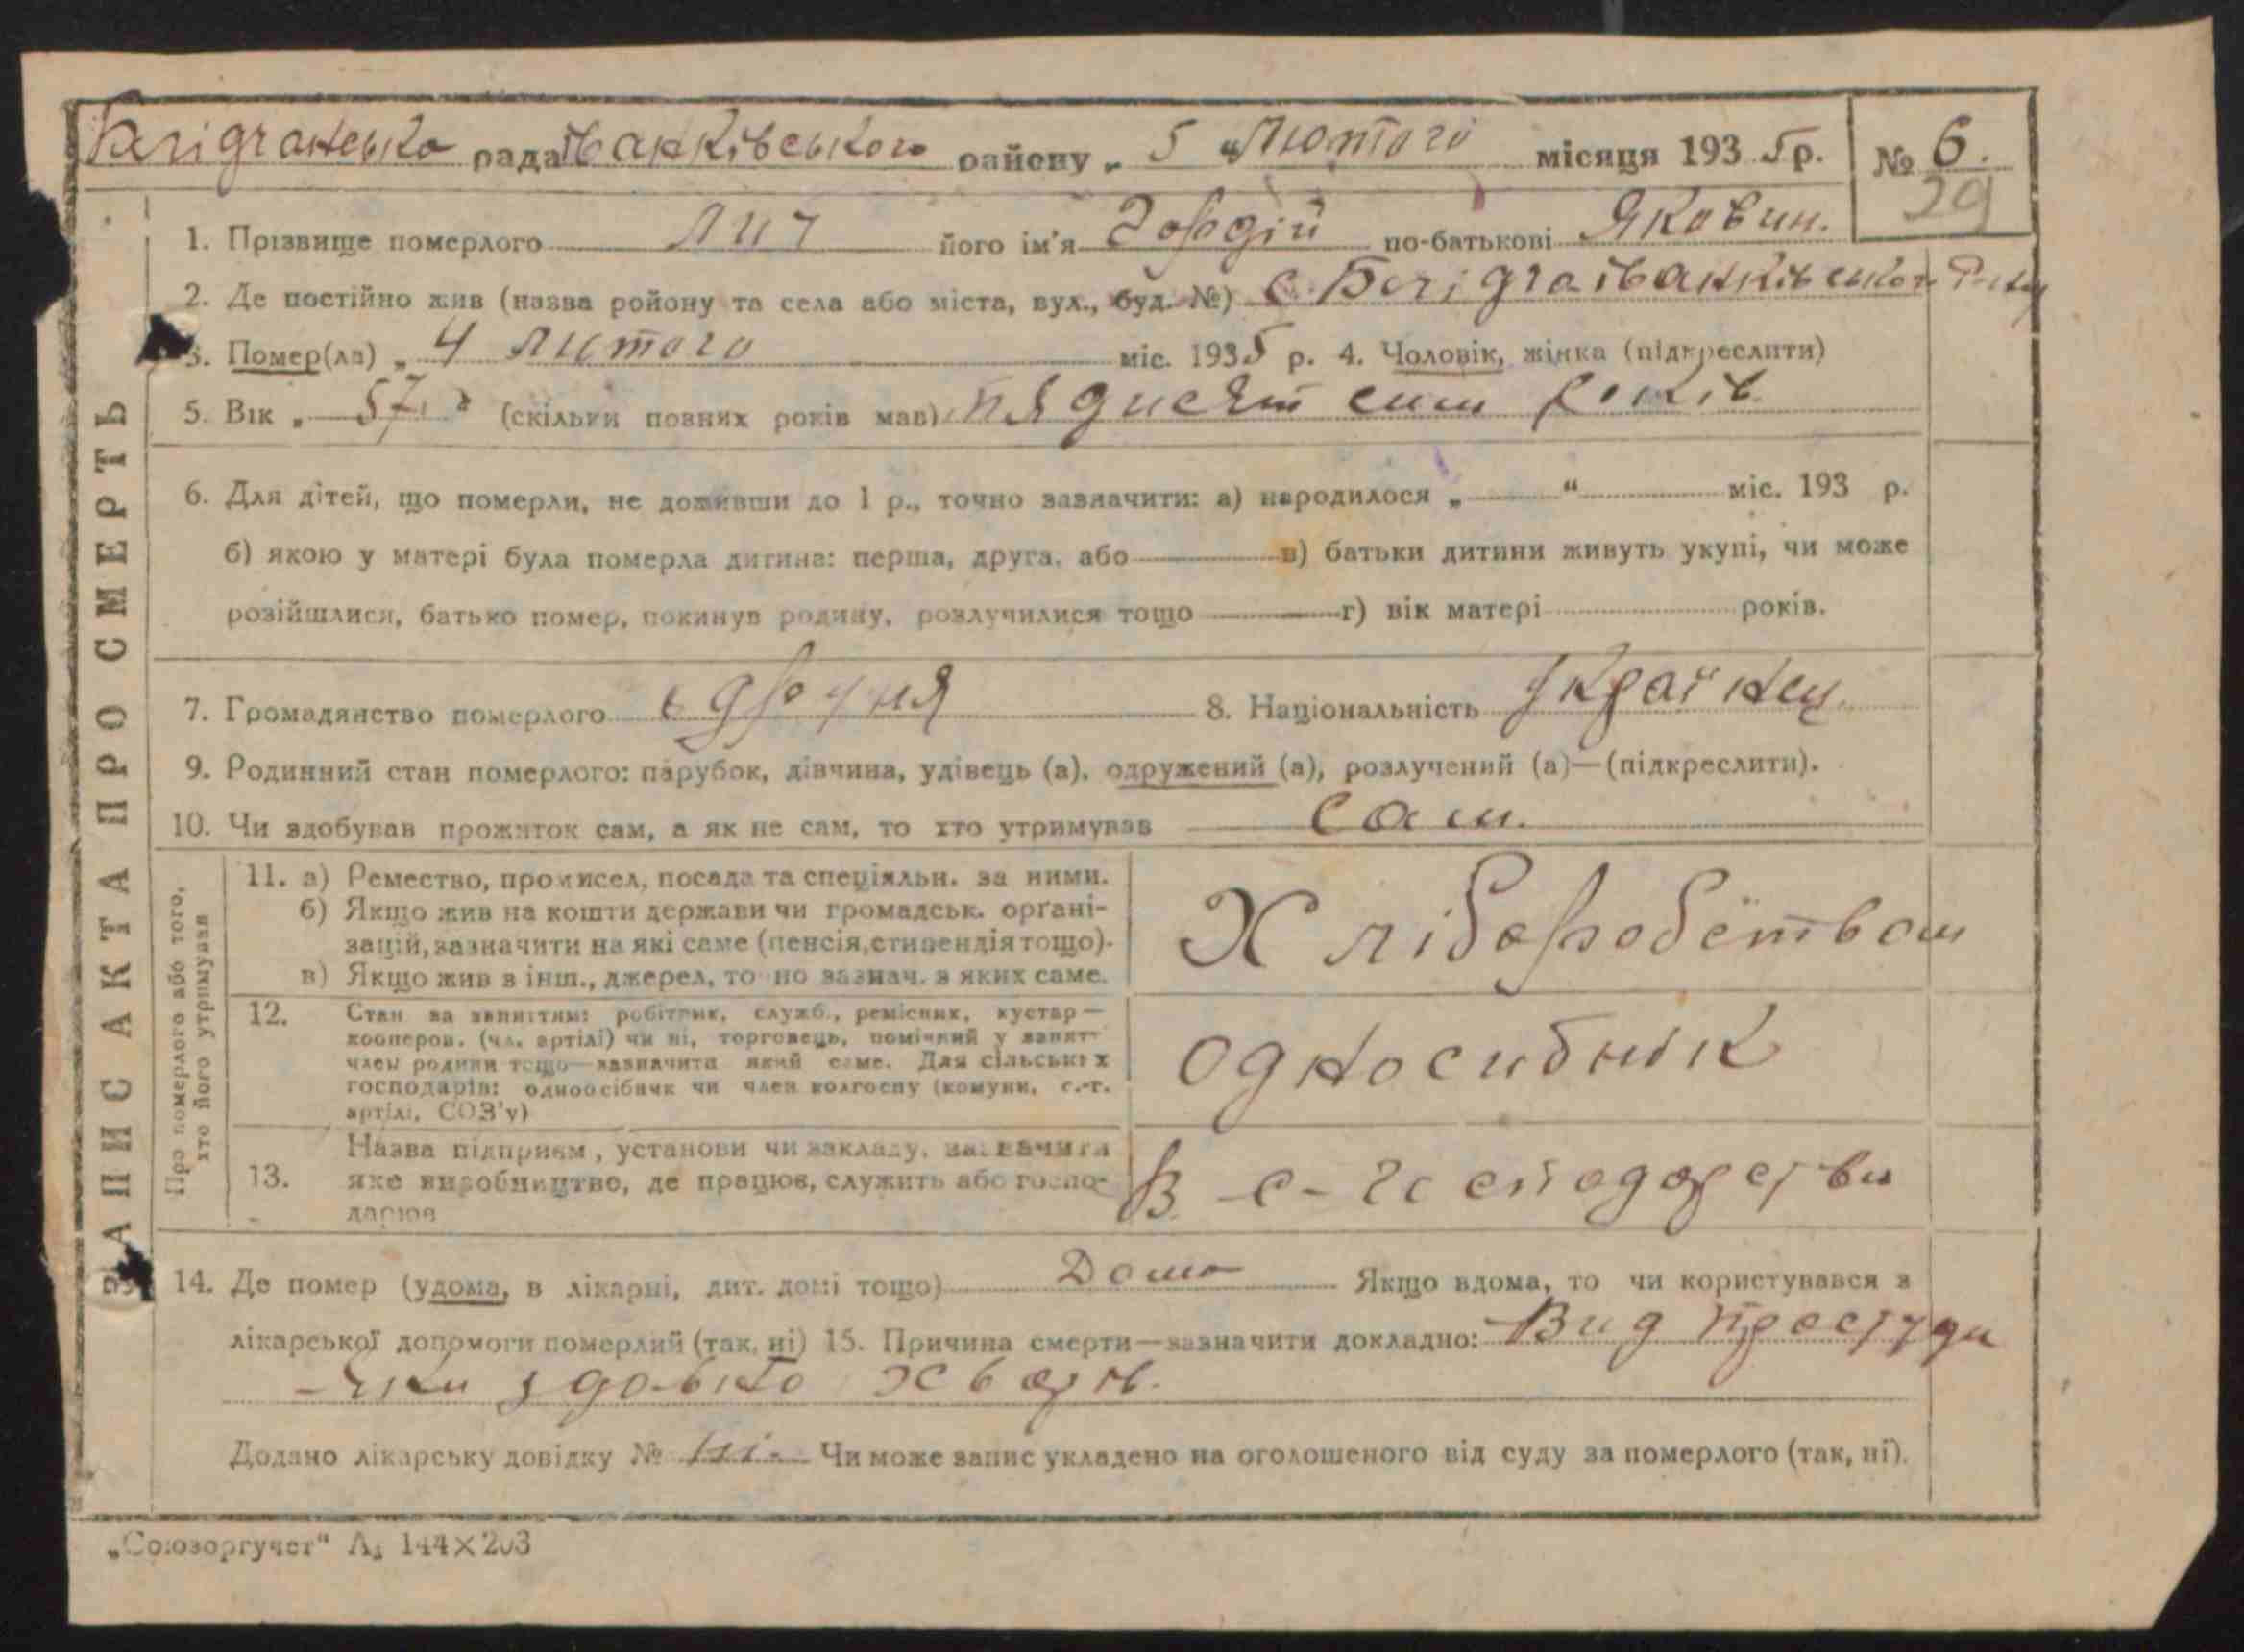 рада Іванківського району „ 5 " Лютого місяця 193 5 р. № 6.
29
1. Прізвище померлого Лич його ім'я Гордій по-батькові Якович.
2. Де постійно жив (назва ройону та села або міста, вул., буд. №) с. Іванківського
3. Помер(ла) „ 4 лютого міс. 1935 р. 4. Чоловік, жінка (підкреслити)
5. Вік „ 57 (скільки повних років мав) пядисят сим років
6. Для дітей, що померли, не доживши до 1 р., точно зазначити: а) народилося „ “ міс. 193 р.
б) якою у матері була померла дитина: перша, друга, або в) батьки дитини живуть укупі, чи може
розійшлися, батько помер, покинув родину, розлучилися тощо г) вік матері років.
7. Громадянство померлого 8. Національність Українец.
9. Родинний стан померлого: парубок, дівчина, удівець (а), одружений (а), розлучений (а)—(підкреслити).
10. Чи здобував прожиток сам, а як не сам, то хто утримував сам.
ЗАПИС АКТА ПРО СМЕРТЬ
Про померлого або того,
хто його утримував
11. а) Ремество, промисел, посада та спеціяльн. за ними.
б) Якщо жив на кошти держави чи громадськ. орґані-
зацій, зазначити на які саме (пенсія, стипендія тощо).
в) Якщо жив з інш., джерел, то но зазнач. з яких саме.
Хліборобством
12. Стан за заняттям: робітник, служб., ремісник, кустар —
кооперов. (чл. артілі) чи ні, торговець, помічний у занят-
член родини тощо—зазначити який саме. Для сільських
господарів: одноосібник чи член колгоспу (комуни, с.-г.
артілі, СОЗ'у)
односибник
13. Назва підприєм, установи чи закладу, зазначити
яке виробництво, де працює, служить або госпо-
дарює
В с-господарстви
14. Де помер (удома, в лікарні, дит. домі тощо) Дома Якщо вдома, то чи користувався з
лікарської допомоги померлий (так, ні) 15. Причина смерти—зазначити докладно: Вид простуди
здавно хворів.
Додано лікарську довідку № ні. Чи може запис укладено на оголошеного від суду за померлого (так, ні).
„Союзоргучет" 144×203